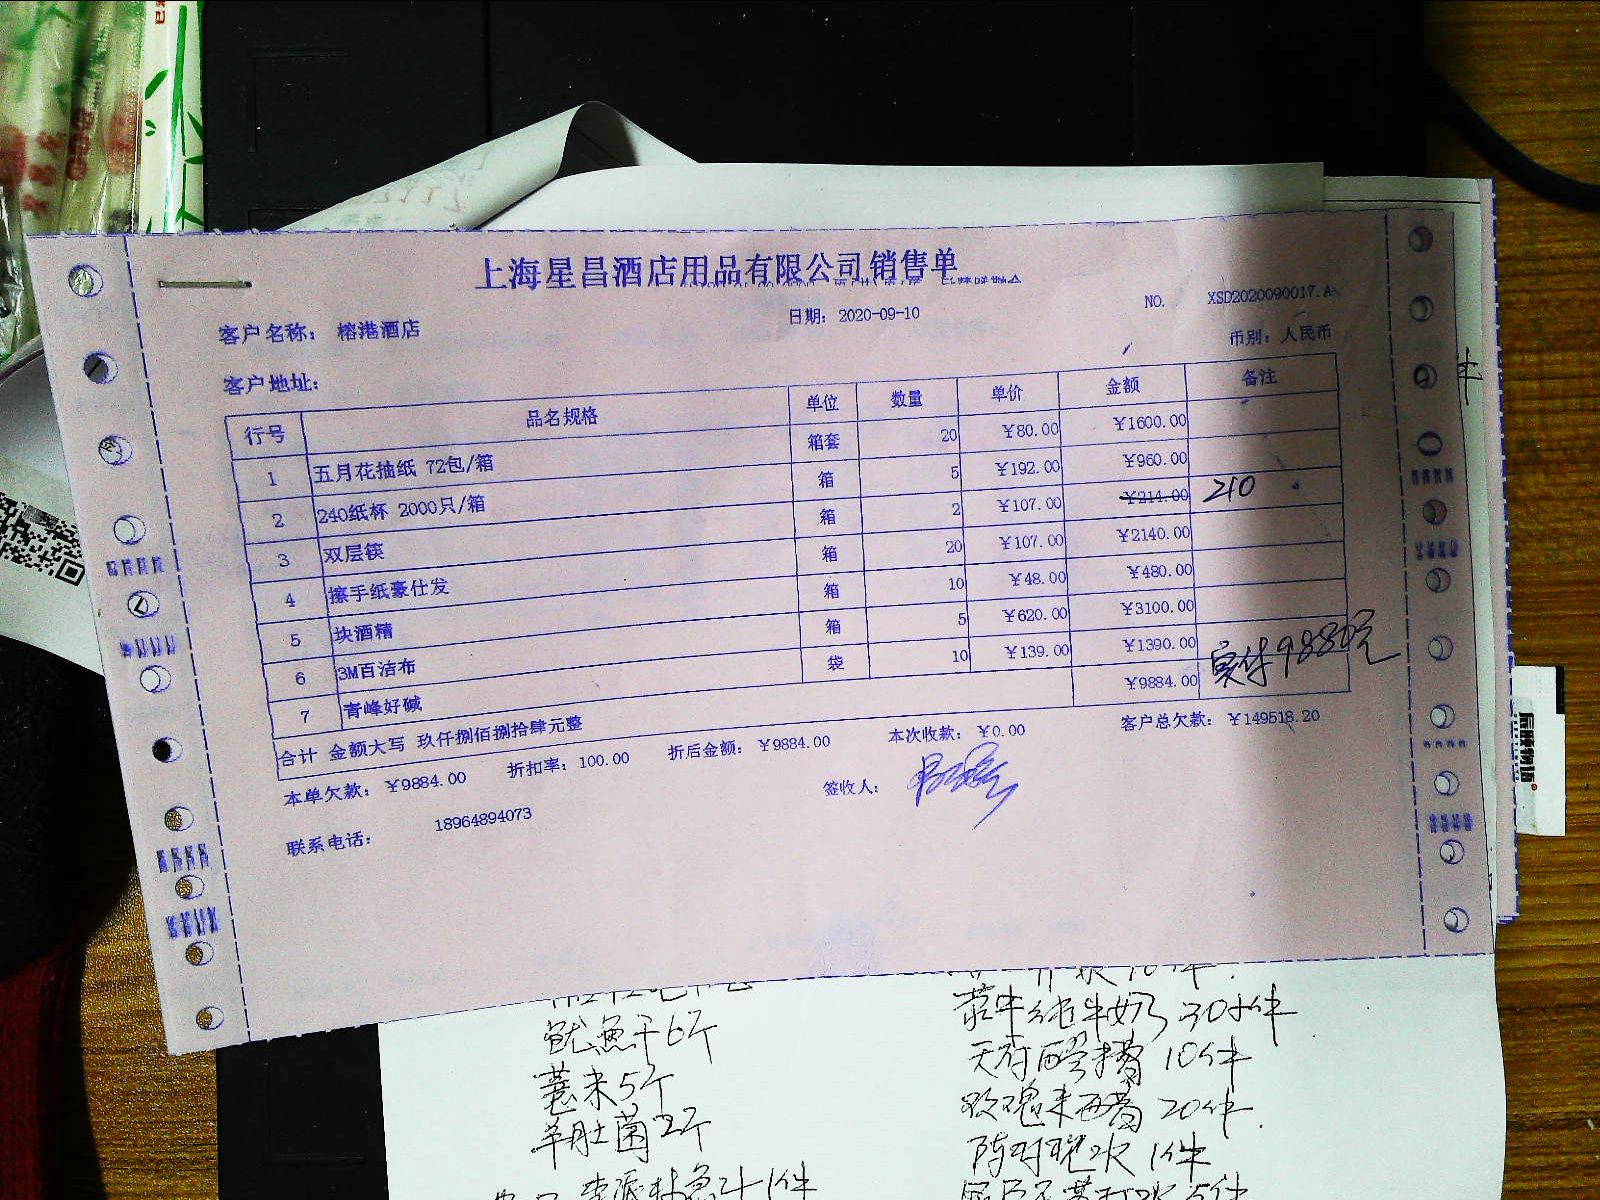 上海星昌酒店用品有限公司销售单
客户名称： 榕港酒店
日期：2020-09-10
NO. XSD2020090017.A
客户地址：
币别：人民币
行号 品名规格 单位 数量 单价 金额 备注
1 五月花抽纸 72包/箱 箱套 20 ￥80.00 ￥1600.00
2 240纸杯 2000只/箱 箱 5 ￥192.00 ￥960.00
3 双层筷 箱 2 ￥107.00 ￥214.00 210
4 擦手纸豪仕发 箱 20 ￥107.00 ￥2140.00
5 块酒精 箱 10 ￥48.00 ￥480.00
6 3M百洁布 箱 5 ￥620.00 ￥3100.00
7 青峰好碱 袋 10 ￥139.00 ￥1390.00
合计 金额大写 玖仟捌佰捌拾肆元整 ￥9884.00 实付9880元
本单欠款：￥9884.00 折扣率：100.00 折后金额：￥9884.00 本次收款：￥0.00 客户总欠款：￥149518.20
签收人：
联系电话： 18964894073
鱿鱼干6斤
薏米5斤
羊肚菌2斤
蒙牛纯牛奶30件
天府 10件
玫瑰米 20件
1件
1件
5件